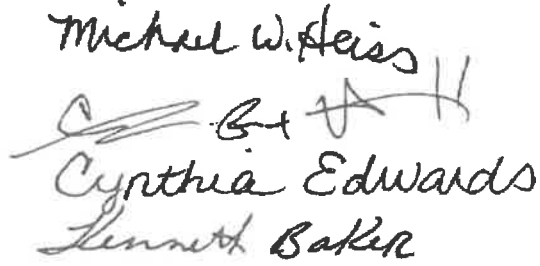 Michael W. Heiss
Cynthia Edwards
Kenneth Baker